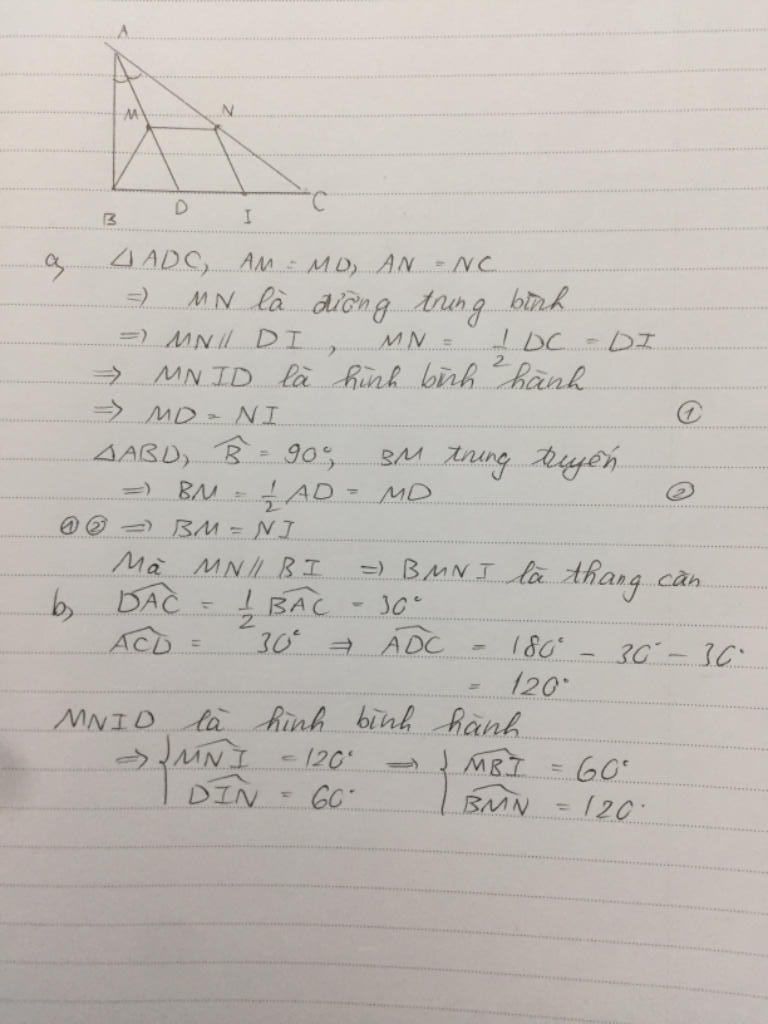 A
M N
B D I C
a, △ADC, AM = MD, AN = NC
⇒ MN là đường trung bình
⇒ MN // DI , MN = 1/2 DC = DI
⇒ MNID là hình bình hành
⇒ MD = NI ①
△ABD, B̂ = 90°, BM trung tuyến
⇒ BM = 1/2 AD = MD ②
① ② ⇒ BM = NI
Mà MN // BI ⇒ BMNI là thang cân
b, D̂AC = 1/2 B̂AC = 30°
ÂCD = 30° ⇒ ÂDC = 180° - 30° - 30°
= 120°
MNID là hình bình hành
⇒ { M̂NI = 120° ⇒ { M̂BI = 60°
D̂IN = 60° B̂MN = 120°